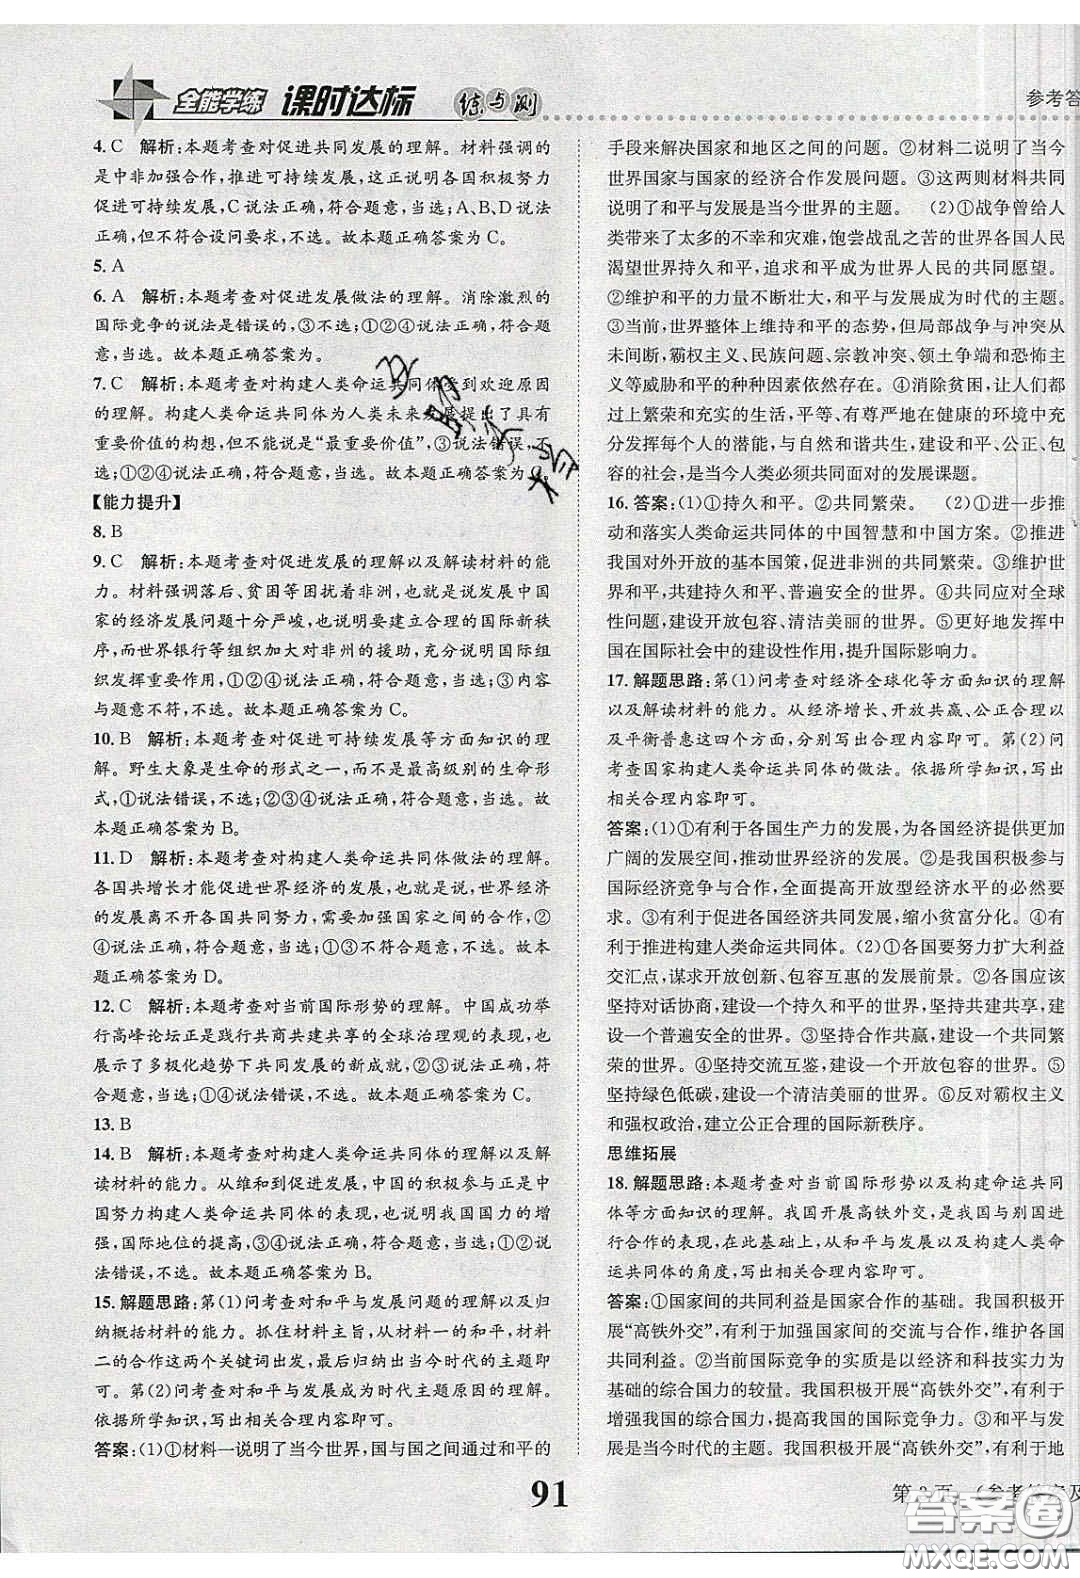 全能学练 课时达标 练与测
参考答
4. C 解析:本题考查对促进共同发展的理解。材料强调的
是中非加强合作，推进可持续发展，这正说明各国积极努力
促进可持续发展,C说法正确,符合题意,当选;A、B、D说法
正确,但不符合设问要求,不选。故本题正确答案为C。
5. A
6. A 解析:本题考查对促进发展做法的理解。消除激烈的
国际竞争的说法是错误的,③不选;①②④说法正确,符合题
意,当选。故本题正确答案为。
7. C 解析:本题考查对构建人类命运共同体受到欢迎原因
的理解。构建人类命运共同体为人类未来发展提出了具有
重要价值的构想,但不能说是“最重要价值”,③说法错误,不
选;①②④说法正确,符合题意,当选。故本题正确答案为C。
【能力提升】
8. B
9. C 解析:本题考查对促进发展的理解以及解读材料的能
力。材料强调落后、贫困等困扰着非洲,这是说发展中国
家的经济发展问题十分严峻,也说明要建立合理的国际新秩
序,而世界银行等组织加大对非州的援助,充分说明各国组
织积极承担责任,①②④说法正确,符合题意,当选;③内容
与题意不符,不选。故本题正确答案为C。
10. B 解析:本题考查对促进可持续发展等方面知识的理
解。野生大象是生命的形式之一,而不是最高级别的生命形
式,①说法错误,不选;②③④说法正确,符合题意,当选。故
本题正确答案为B。
11. D 解析:本题考查对构建人类命运共同体做法的理解。
各国共增长才能促进世界经济的发展,也就是说,世界经济
的发展离不开各国共同努力,需要加强国家之间的合作,②
④说法正确,符合题意,当选;①③不符合题意,不选。故本
题正确答案为D。
12. C 解析:本题考查对当前国际形势的理解。中国成功举
行高峰论坛正是践行共商共建共享的全球治理观的表现,也
展示了多极化趋势下共同发展的特点,②③说法正确,符
合题意,当选;①④说法错误,不选。故本题正确答案为C。
13. B
14. B 解析:本题考查对构建人类命运共同体的理解以及解
读材料的能力。从维和到促进发展,中国的积极参与正是中
国努力构建人类命运共同体的表现,也说明我国国力的增
强,国际地位的提高,③④说法正确,符合题意,当选;①②说
法错误,不选。故本题正确答案为B。
15. 解题思路:第(1)问考查对和平与发展问题的理解以及归
纳概括材料的能力。抓住材料主旨,从材料一的和平,材料
二的合作这两个关键词出发,最后归纳出当今时代主题即
可。第(2)问考查对和平与发展成为时代主题原因的理解。
依据所学知识,写出相关合理内容即可。
答案:(1)①材料一说明了当今世界,国与国之间通过和平的
手段来解决国家和地区之间的问题。②材料二说明了当今
世界国家与国家的经济合作发展问题。③这两则材料共同
说明了和平与发展是当今世界的主题。 (2)①战争曾给人
类带来了太多的不幸和灾难,饱尝战乱之苦的世界各国人民
渴望世界持久和平,追求和平成为世界人民的共同愿望。
②维护和平的力量不断壮大,和平与发展成为时代的主题。
③当前,世界整体上维持和平的态势,但局部战争与冲突从
未间断,霸权主义、民族问题、宗教冲突、领土争端和恐怖主
义等威胁和平的种种因素依然存在。④消除贫困,让人们过
上更繁荣和充实的生活,平等、有尊严地在健康的环境中充
分发挥每个人的潜能,与自然和谐共生,建设和平、公正、包
容的社会,是当今人类必须共同面对的发展课题。
16. 答案:(1)①持久和平。②共同繁荣。 (2)①进一步推
动和落实人类命运共同体的中国智慧和中国方案。②推进
我国对外开放的基本国策,促进非洲的共同繁荣。③推进
世界和平,共建持久和平、普遍安全的世界。④共同应对全球
性问题,共同建设开放包容、清洁美丽的世界。⑤更好地发挥
中国在国际社会中的建设性作用,提升国际影响力。
17. 解题思路:第(1)问考查对经济全球化等方面知识的理解
以及解读材料的能力。从经济增长、开放共赢、公正合理以
及平衡普惠这四个方面,分别写出合理内容即可。第(2)问
考查国家构建人类命运共同体的做法。依据所学知识,写出
相关合理内容即可。
答案:(1)①有利于各国生产力的发展,为各国经济提供更加
广阔的发展空间,推动世界经济的发展。②是我国积极参与
国际经济竞争与合作,全面提高开放型经济水平的必然要
求。③有利于促进各国经济共同发展,缩小贫富分化。④有
利于推进构建人类命运共同体。(2)①各国要努力扩大利益
交汇点,谋求开放创新、包容互惠的发展前景。②各国应该
坚持对话协商,建设一个持久和平的世界,坚持共建共享,建
设一个普遍安全的世界。③坚持合作共赢,建设一个共同繁
荣的世界。④坚持交流互鉴,建设一个开放包容的世界。⑤
坚持绿色低碳,建设一个清洁美丽的世界。⑥反对霸权主义
和强权政治,建立公正合理的国际新秩序。
思维拓展
18. 解题思路:本题考查对当前国际形势以及构建命运共同
体等方面知识的理解。我国开展高铁外交,是我国与别国进
行合作的表现,在此基础上,从和平与发展以及构建人类命
运共同体的角度,写出相关合理内容即可。
答案:①国家间的共同利益是国家合作的基础。我国积极开
展“高铁外交”,有利于加强国家间的交流与合作,维护各国
共同利益。②当前国际竞争的实质是以经济和科技实力为
基础的综合国力的较量。我国积极开展“高铁外交”,有利于
增强我国的综合国力,提高我国的国际竞争力。③和平与发
展是当今时代的主题。我国积极开展“高铁外交”,有利于地
91
答案圈
MXQE.COM